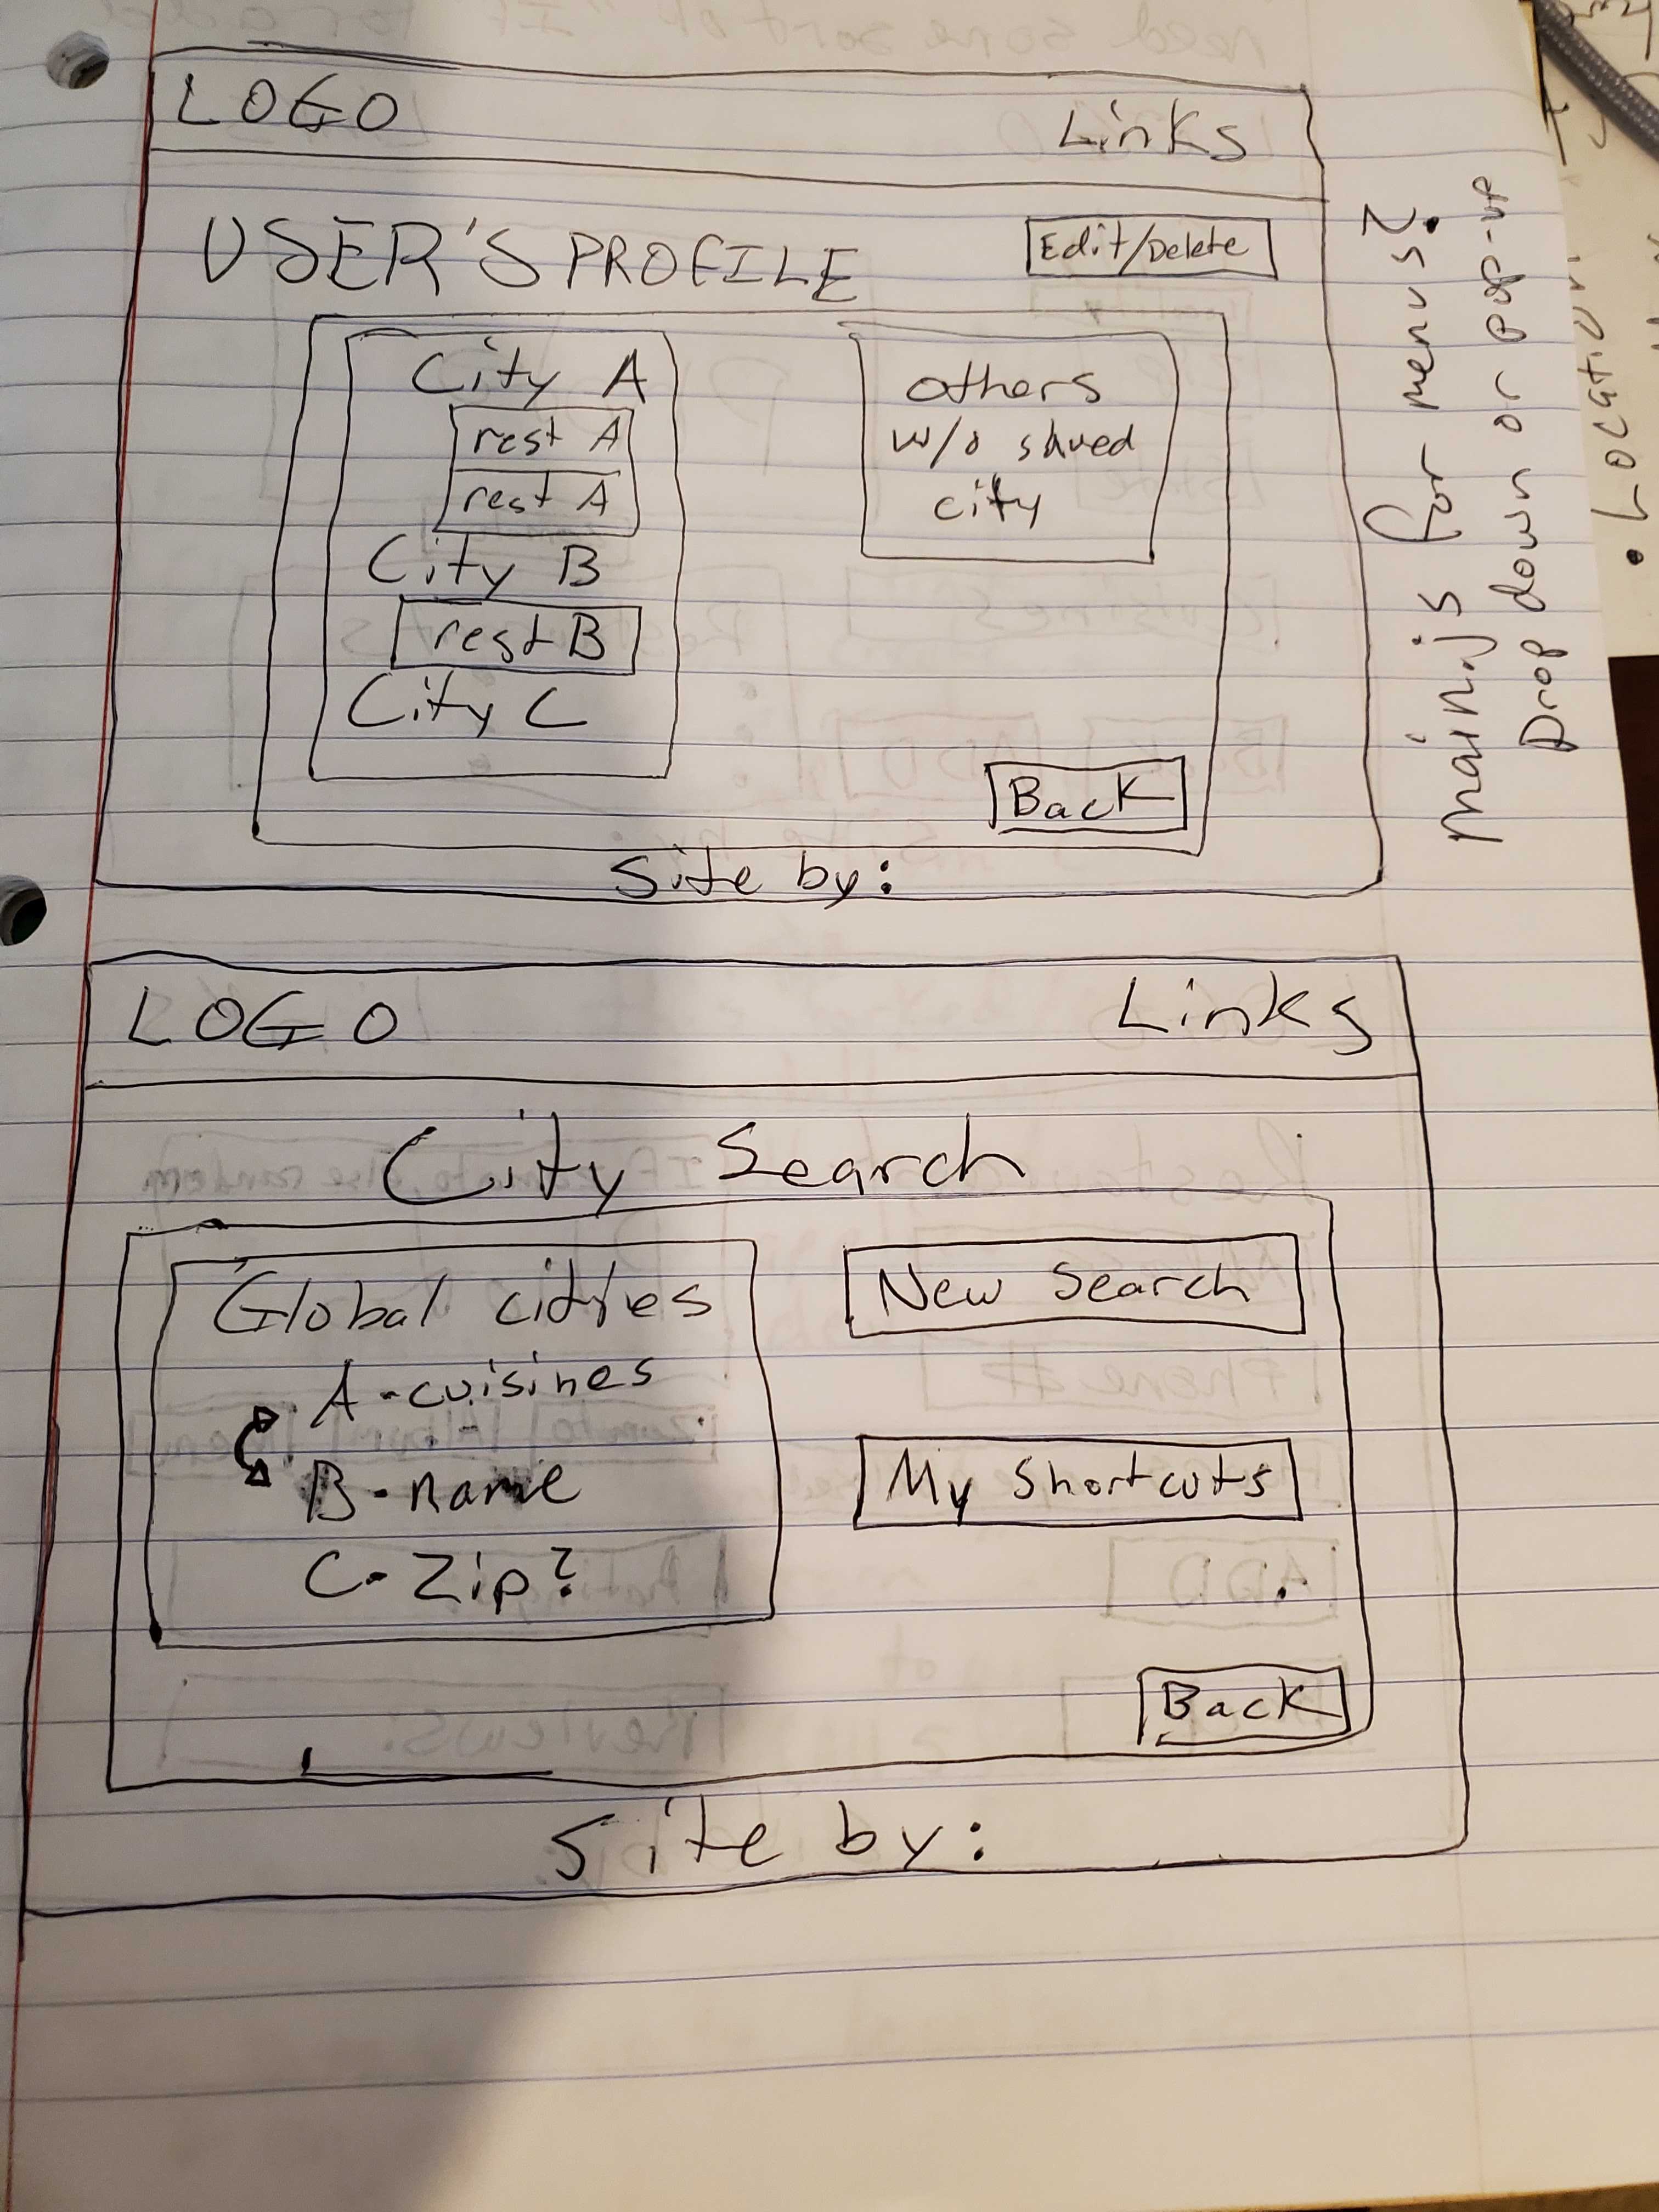 LOGO
Links
USER'S PROFILE
Edit/Delete
City A
rest A
rest A
City B
rest B
City C
others
w/o saved
city
Back
Site by:
main.js for menus?
Drop down or pop-up
• Location
LOGO
Links
City Search
Global cities
A-cuisines
B-name
C-Zip?
New Search
My Shortcuts
Back
Site by: